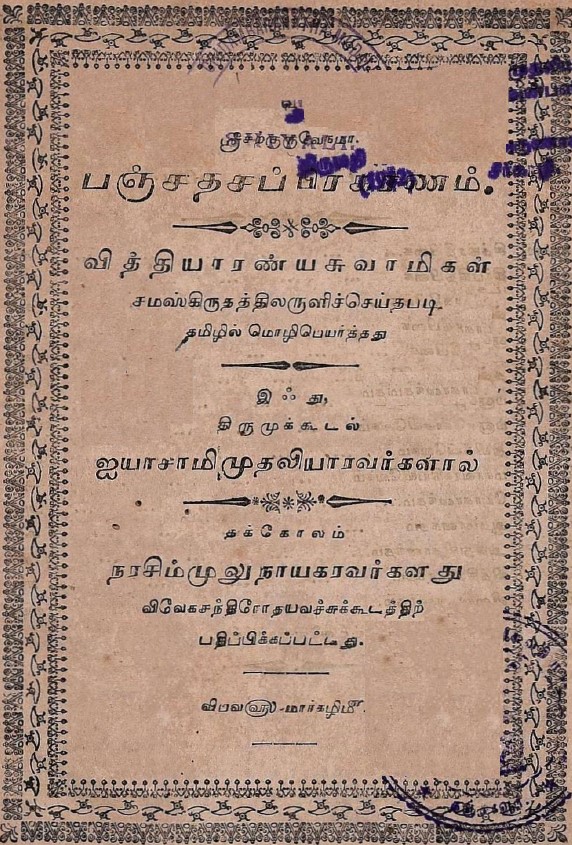 உ
ஸ்ரீசற்குருவேநமா.
பஞ்சதசப்பிரகரணம்.
வித்தியாரண்யசுவாமிகள்
சமஸ்கிருதத்திலருளிச்செய்தபடி
தமிழில் மொழிபெயர்த்தது
இஃது,
திருமுக்கூடல்
ஐயாசாமிமுதலியாரவர்களால்
தக்கோலம்
நரசிம்முலுநாயகரவர்களது
விவேகசந்திரோதயவச்சுக்கூடத்திற்
பதிப்பிக்கப்பட்டது.
விபவ௵-மார்கழி௴.